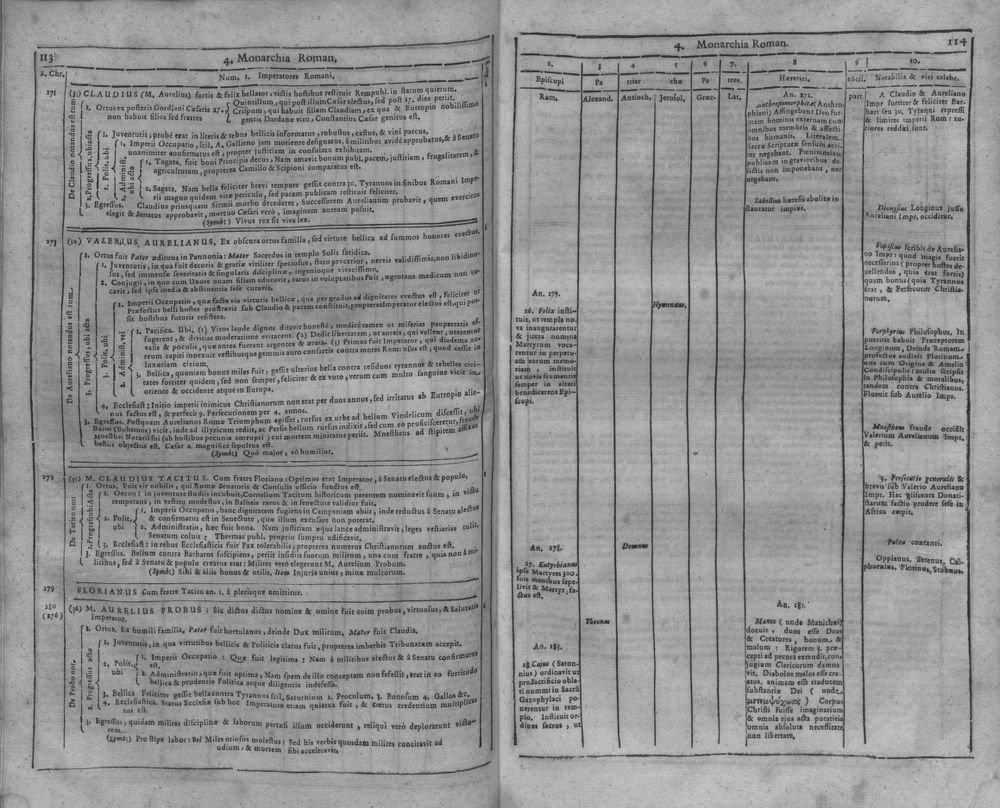 113
4. Monarchia Roman.
à. Chr.
Num. 1. Imperatores Romani.
271
CLAUDIUS (M. Aurelius) fortis & felix bellator, victis hostibus restituit Rempubl. in statum quietum.
1. Ortus ex posteris Gordiani Cæsaris
non habuit filios sed fratres
Quintillum, qui post illum Cæsar electus, sed post 17, dies periit.
Crispum, qui habuit filiam Claudiam, ex qua & Eutropio nobilissimo
gentis Dardanæ viro, Constantius Cæsar genitus est.
De Claudio notandus est eum
2. Progressus, ubi acta
1. Juventutis, probè erat in literis & rebus bellicis informatus, robustus, castus, & vini parcus.
2. Polit. ubi
1. Imperii Occupatio, scil. A. Gallieno jam moriente designatus, à militibus avidè approbatus, & à Senatu
unanimiter confirmatus est, propter justitiam in consulatu exhibitam.
2. Administ. ubi acta
1. Togata, fuit boni Principis decus, Nam amavit bonum publ. pacem, justitiam, frugalitatem, &
agriculturam, propterea Camillo & Scipioni comparatus est.
2. Sagata, Nam bella feliciter brevi tempore gessit contra 30. Tyrannos in finibus Romani Impe-
rii magno quidem vitæ periculo, sed pacem publicam restituit feliciter.
3. Egressus. Claudius priusquam Sirmii morbo decederet, Successorem Aurelianum probavit, quem exercitus
elegit & Senatus approbavit, mortuo Cæsari verò, imaginem auream posuit.
(Symb:) Vivus rex sit viva lex.
273
(34) VALERIUS AURELIANUS, Ex obscura ortus familia, sed virtute bellica ad summos honores evectus.
De Aureliano notandus est eum
1. Ortus fuit Pater ædituus in Pannonia: Mater Sacerdos in templo Solis fatidica.
2. Progressus, ubi acta
1. Juventutis, in qua fuit decoris & gratiæ viriliter speciosus, statu procerior, nervis validissimis, non libidino-
sus, sed immensæ severitatis & singularis disciplinæ, ingenioque vivacissimo.
2. Conjugii, in quo cum Uxore unam filiam educavit, rarus in voluptatibus fuit, ægrotans medicum non vo-
cavit, sed ipse inedia & abstinentia sese curavit.
3. Polit. ubi
1. Imperii Occupatio, quæ facta vis virtutis bellicæ, qua per gradus ad dignitates evectus est, feliciter ut
Præfectus belli hostes prostravit sub Claudio & pacem constituit, propterea Imperator electus est, qui pos-
sit hostibus futuris resistere.
2. Administ. vel
1. Pacifica. Ubi, (1) Viros laude dignos ditavit honestè, modicè tamen ut miserias paupertatis ef-
fugerent, & divitias moderatione evitarent. (2) Dedit libertatem, ut aureis, qui vellent, uterentur
vasis & poculis, quæ antea fuerant argentea & ærata. (3) Primus fuit Imperator, qui diadema au-
reum capiti innexuit vestibusque gemmis auro consertis contra mores Rom: usus est, quod cessit in
luxuriam civium.
2. Bellica, quoniam bonus miles fuit, gessit ulterius bella contra residuos tyrannos & rebelles civi-
tates fortiter quidem, sed non semper, feliciter & ex voto, verum cum multo sanguine vicit in
oriente & occidente atque in Europa.
4. Ecclesiast: Initio imperii inimicus Christianorum non erat per duos annos, sed irritatus ab Eutropio alie-
nus factus est, & perfecit 9. Persecutionem per 4. annos.
3. Egressus. Postquam Aurelianus Romæ Triumphum egisset, rursus ex urbe ad bellum Vindelicum discessit, ubi
Boios (Bohemos) vicit, inde ad illyricum rediit, ac Persis bellum rursus indixit, sed cum eo proficisceretur, fraude
Mnesthei Notarii sui (ab hostibus pecunia corrupti) cui mortem minitatus periit. Mnestheus ad stipitem affixus
bestiis objectus est. Cæsar a. magnificè sepultus est.
(Symb:) Quò major, eò humilior.
279
(35) M. CLAUDIUS TACITUS. Cum fratre Floriano: Optimus erat Imperator, à Senatu electus & populo.
De Tacito not:
1. Ortus. Fuit vir nobilis, qui Romæ Senatoris & Consulis officio functus est.
2. Progres. ubi Acta
1. Oecon: in juventute studiis incubuit, Cornelium Tacitum historicum parentem nominavit suum, in victu
temperans, in vestitu modestus, in Balneis rarus & in senectute validior fuit.
2. Polit. ubi
1. Imperii Occupatio, hanc dignitatem fugiens in Campaniam abiit, inde reductus à Senatu electus
& confirmatus est in Senectute, quæ illum excusare non poterat.
2. Administratio, hæc fuit bona. Nam justitiam æqua lance administravit, leges vestiarias tulit,
Senatum coluit; Thermas publ. proprio sumptu ædificavit.
3. Ecclesiast: in rebus Ecclesiasticis fuit Pax tolerabilis, propterea numerus Christianorum auctus est.
3. Egressus. Bellum contra Barbaros suscipiens, periit insidiis suorum militum, una cum fratre, quia non à mi-
litibus, sed à Senatu & populo creatus erat: Milites verò elegerunt M. Aurelium Probum.
(Symb:) Sibi & aliis bonus & utilis, Item Injuria unius, minæ multorum.
279
FLORIANUS Cum fratre Tacito an. 1. à plerisque omittitur.
280
(276)
(36) M. AURELIUS PROBUS: Sic dictus dictus nomine & omine fuit enim probus, virtuosus, & Salutaris
Imperator.
De Probo not.
1. Ortus. Ex humili familia, Pater fuit hortulanus, deinde Dux militum, Mater fuit Claudia.
2. Progressus actæ
1. Juventutis, in qua virtutibus bellicis & Politicis clarus fuit, propterea imberbis Tribunatum accepit.
2. Polit. ubi
1. Imperii Occupatio: Quæ fuit legitima: Nam à militibus electus & à Senatu confirmatus
est.
2. Administratio, quæ fuit optima, Nam spem de illo conceptam non fefellit, erat in eo fortitudo
bellica & prudentia Politica atque diligentia indefessa.
3. Bellica. Feliciter gessit bella contra Tyrannos scil. Saturninum 2. Proculum, 3. Bonosum 4. Gallos &c.
4. Ecclesiastica. Status Ecclesiæ sub hoc Imperatore etiam quietus fuit, & cœtus credentium multiplica-
tus est.
3. Egressus, quidam milites disciplinæ & laborum pertæsi illum occiderunt, reliqui verò deplorarunt victo-
rem.
(Symb:) Pro stipe labor: Vel Miles otiosus molestus: Sed his verbis quosdam milites concitavit ad
odium, & mortem sibi acceleravit.
4. Monarchia Roman.
114
2. 3 4 5 6 7. 8 9 10.
Episcopi Pa triar chæ Pa tres. Hæretici. cōcil. Notabilia & viri celebr.
Rom. Alexand. Antioch. Jerosol. Græc. Lat. part.
An. 275.
26. Felix insti-
tuit, ut templa no
va inaugurarentur
& juxta nomina
Martyrum voca-
rentur in perpetu-
am eorum memo-
riam, instituit
ut novis frumentis
semper in altari
benedicerent Epi-
scopi.
An. 278.
27. Eutychianus
ipse Martyres 300.
suis manibus sepe-
livit & Martyr, fa-
ctus est.
An. 283.
28. Cajus (Saton-
nius) ordinavit ut
pro Sacrificio obla-
ti nummi in Sacrū
Gazophylaci po-
nerentur in tem-
plo. Instituit or-
dines sacros, ut
Theonas
Domnus
Hymenæus.
An. 272.
Anthropomorphitæ (Anthro-
phiani) Affingebant Deo for-
mam hominis externam cum
omnibus membris & affecti-
bus humanis. Literalem
Sacræ Scripturæ sensum acri-
ter negabant. Pœnitentiam
publicam in gravioribus de-
lictis non imponebant, nec
urgebant.
Sabellius hæresin abolitā in
stauratur impius.
An. 281.
Manes (unde Manichæi)
docuit, duos esse Deos
& Creatores, bonum &
malum: Rigorem 5. præ-
cepti ad pecora extendit, con-
jugium Clericorum damna-
vit, Diabolos malos esse cre-
atos, animam esse traducem
substantiæ Dei (unde
μετεμψύχωσις) Corpus
Christi fuisse imaginarium
& omnia ejus acta putatitia
omnia absoluta necessitate
non libertate.
A Claudio & Aureliano
Impr fortiter & feliciter Bar-
bari seu 30. Tyranni repressi
& limites imperii Rom: tu-
tiores redditi sunt.
Dionysius Longinus jussu
Aureliani Impr. occiditur.
Vopiscus scribit de Aurelia-
no Impr: quod magis fuerit
necessarius (propter hostes de-
pellendos, quia erat fortis)
quam bonus (quia Tyrannus
erat, & Persecutor Christia-
norum.
Porphyrius Philosophus. In
pueritia habuit Præceptorem
Longinum, Deinde Romam
profectus audivit Plotinum.
una cum Origine & Amelio
Condiscipulis: multa scripsit
in Philosophia & moralibus,
tandem contra Christianos.
Floruit sub Aurelio Imps.
Mnistheus fraude occidit
Valerium Aurelianum Impr.
& perit.
9. Persecutio generalis &
brevis sub Valerio Aureliano
Impr. Hæc gliscente Donati-
starum factio prodere sese in
Africa cœpit.
Poëta coætanei.
Oppianus. Serenus, Cal-
phurnius. Plotinus, Stobæus.